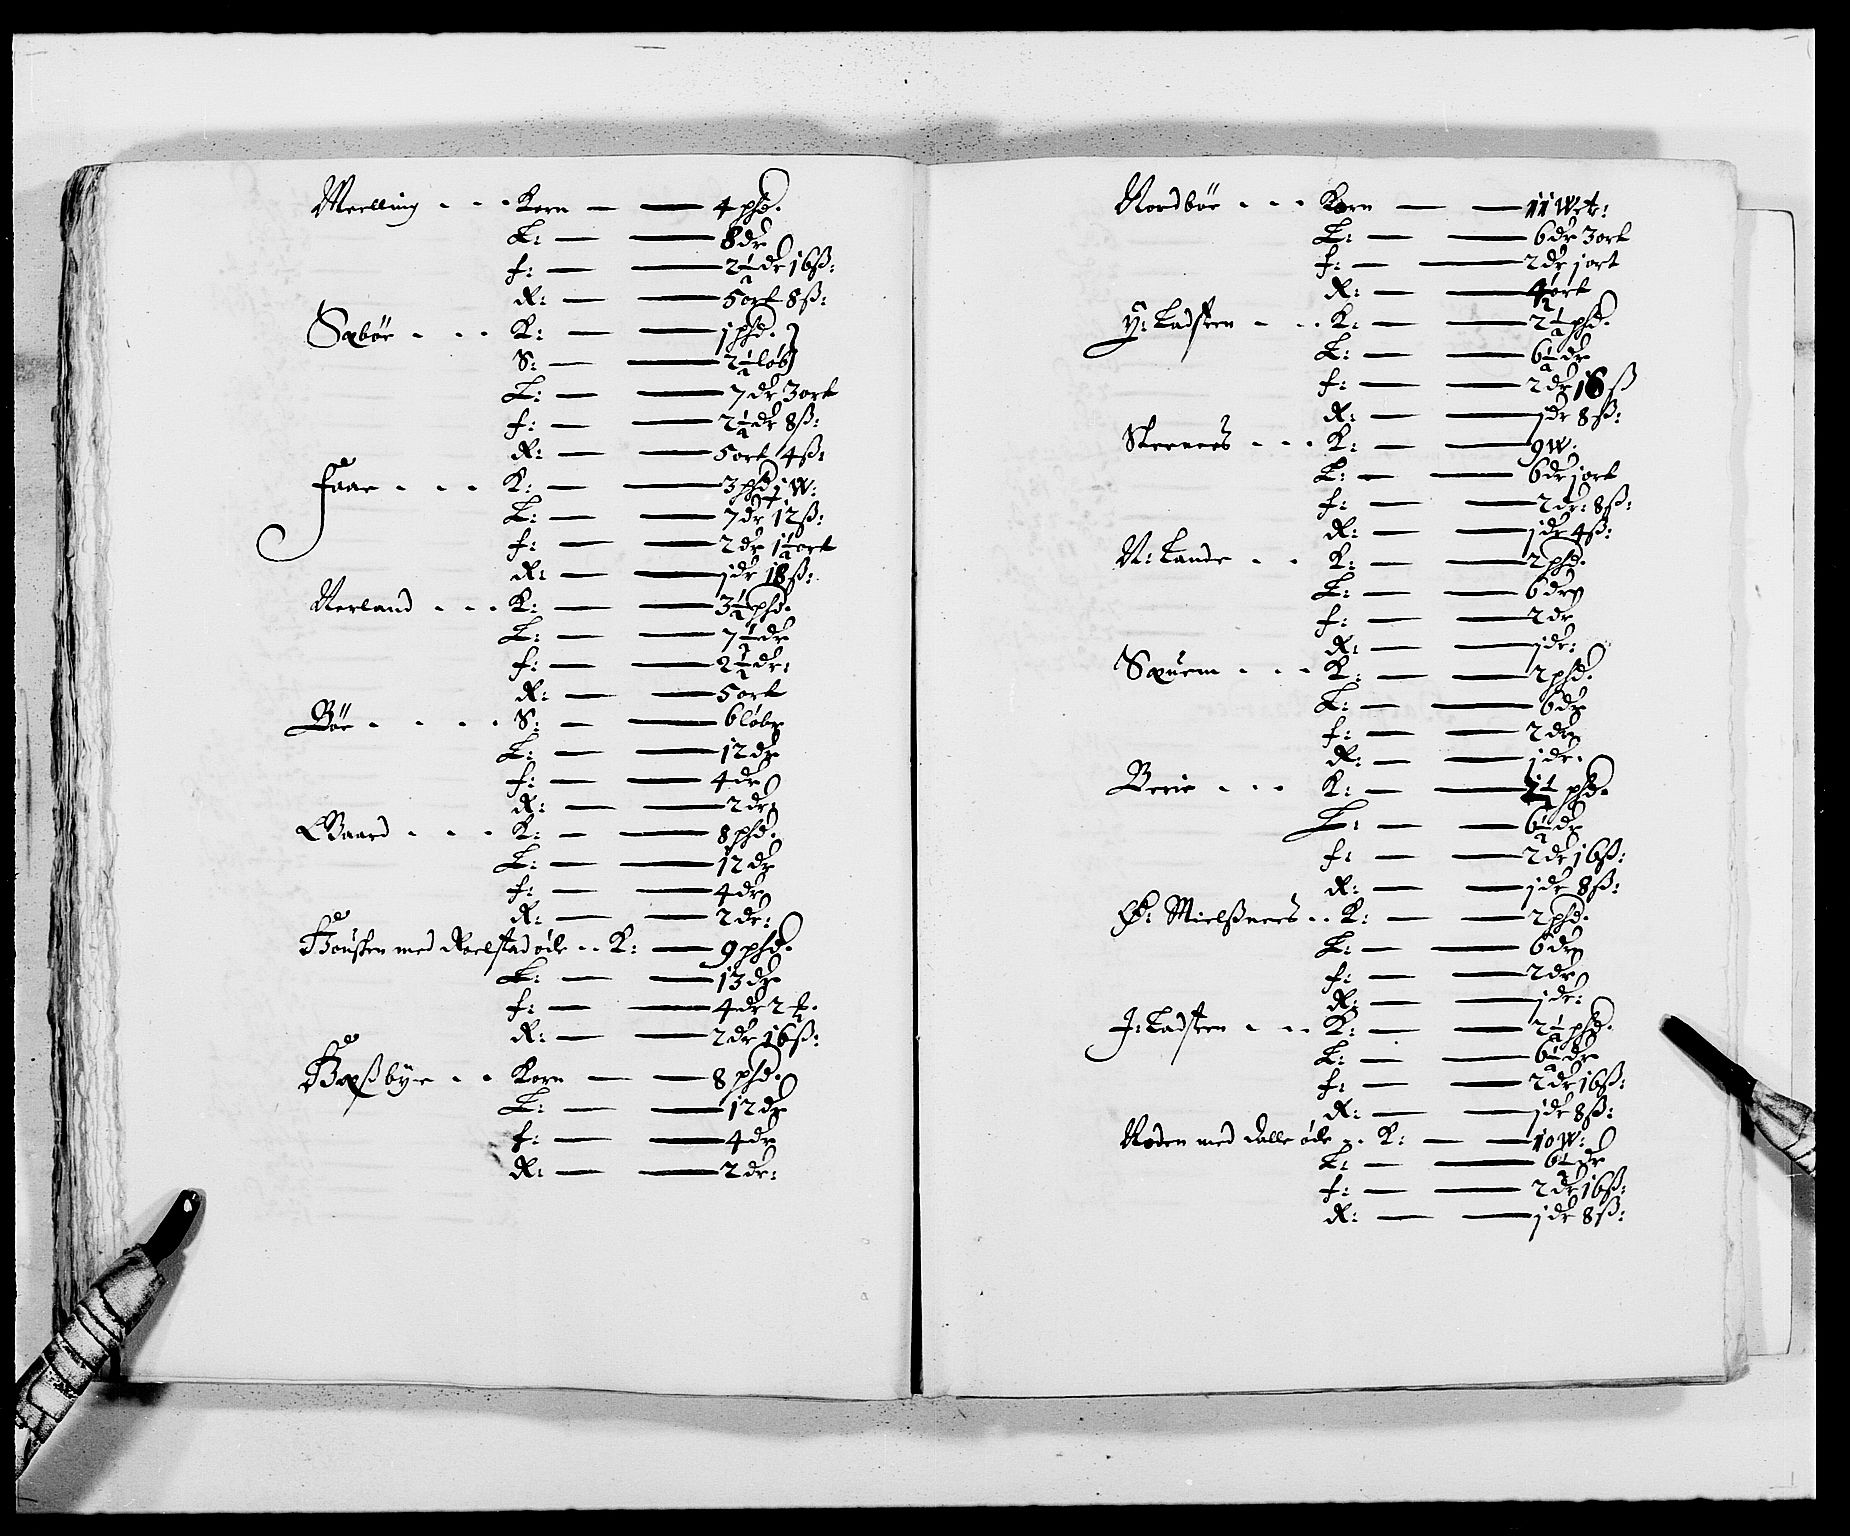 Merling - - - Korn — — 4 psd.
L: — — 8 dr
f: — — 2½ dr 16 ß:
R: — — 5 ort 8 ß:
Sæbøe - - - K: — — 1 psd.
S: — — 2½ løb
L: — — 7 dr 3 ort
f: — — 2½ dr 8 ß:
R: — — 5 ort 4 ß:
Faae - - - K: — — 3 psd 1 W:
L: — — 7 dr 12 ß:
f: — — 2 dr 1½ ort
R: — — 1 dr 18 ß:
Nerland - - - K: — — 3½ psd.
L: — — 7½ dr
f: — — 2½ dr:
R: — — 5 ort
Bøe - - - - S: — — 6 løbe
L: — — 12 dr
f: — — 4 dr
R: — — 2 dr:
Gaard - - - K: — — 8 psd.
L: — — 12 dr
f: — — 4 dr
R: — — 2 dr:
med øde - - K: — 9 psd.
L: — — 13 dr
f: — — 4 dr
R: — — 2 dr 16 ß:
- - Korn — — 8 psd.
L: — — 12 dr
f: — — 4 dr
R: — — 2 dr:
Nordbøe - - - Korn — — 11 Wet:
L: — — 6 dr 3 ort
f: — — 2 dr 1 ort
R: — — ort
Ÿ: Ladsten - - - K: — — 2½ psd.
L: — — 6½ dr
f: — — 2 dr 16 ß
R: — — 1 dr 8 ß:
Sternes - - - K: — — 9 W:
L: — — 6 dr 1 ort
f: — — 2 dr: 8 ß:
R: — — 1 dr 4 ß:
N: Lande - - K: — — 2 psd.
L: — — 6 dr
f: — — 2 dr
R: — — 1 dr:
Sæuem - - - K: — — 2 psd.
L: — — 6 dr
f: — — 2 dr
R: — — 1 dr.
Berie - - - K: — — psd.
L: — — 6½ dr
f: — — 2 dr 16 ß:
R: — — 1 dr 8 ß:
Ø: Mielßnees - - K: — — 2 psd.
L: — — 6 dr
f: — — 2 dr
R: — — 1 dr:
I: Ladsten - - - K: — — 2½ psd.
L: — — 6½ dr
f: — — 2 dr 16 ß:
R: — — 1 dr 8 ß:
Noden med Dalle øde - - K: — — 10 W:
L: — — 6½ dr
f: — — 2 dr 16 ß:
R: — — 1 dr 8 ß: